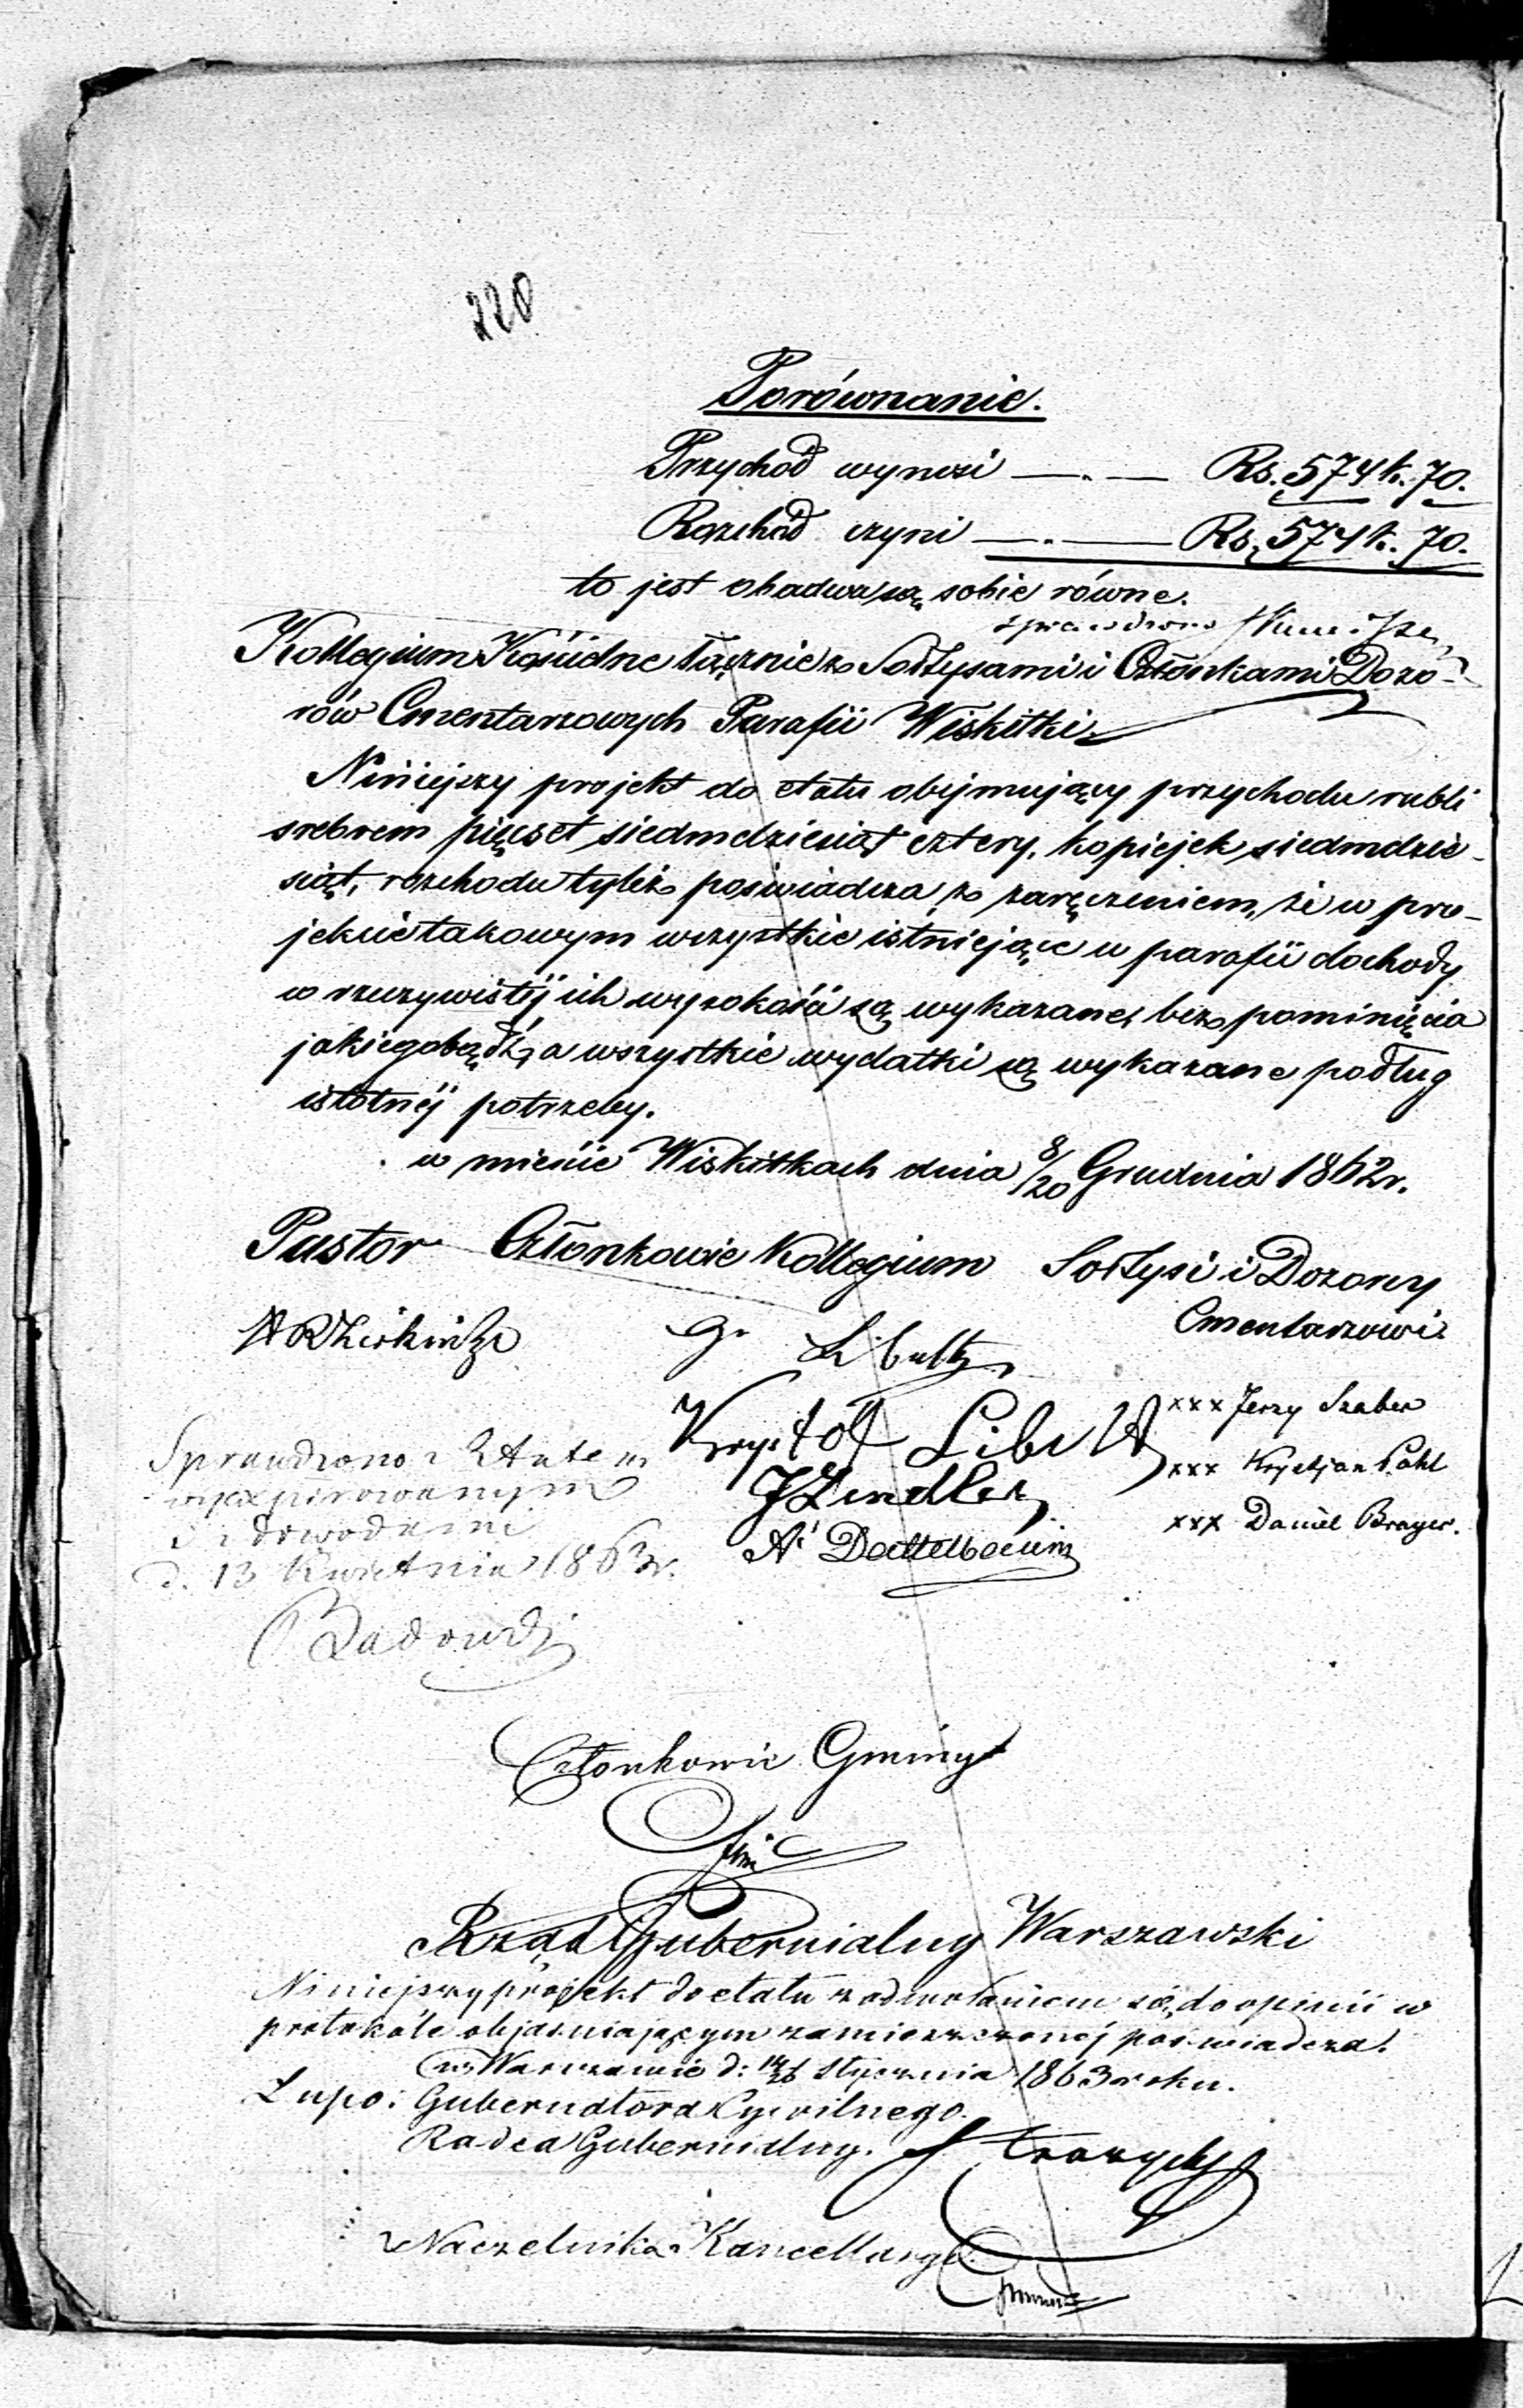 220
Porównanie.
Przychód wynosi —.— Rs. 574 k. 70.
Rozchód czyni —.— Rs. 574 k. 70.
to jest obadwa są sobie równe.
Sprawdzono
Kollegium Kościelne łącznie z Sołtysami i Członkami Dozo-
rów Cmentarzowych Parafii Wiskitki
Niniejszy projekt do etatu obejmujący przychodu rubli
srebrem pięćset siedmdziesiąt cztery, kopiejek siedmdzie-
siąt, rozchodu tyleż poświadcza, z zaręczeniem, że w pro-
jekcie takowym wszystkie istniejące w parafii dochody
w rzeczywistéj ich wysokości są wykazane, bez pominięcia
jakiegobądź, a wszystkie wydatki są wykazane podług
istotnéj potrzeby.
w mieście Wiskitkach dnia 8/20 Grudnia 1862 r.
Pastor Członkowie Kollegium Sołtysi i Dozorcy
Cmentarzowi
G.
Krysztóf Libelt
xxx Jerzy Szaber
J Zendler
xxx Krystjan Pahl
xxx Daniel Brayer.
Sprawdzono z Etatem
wyexpirowanym
i z dowodami
d. 13 Kwietnia 1863 r.
Członkowie Gminy
Rząd Gubernialny Warszawski
Niniejszy projekt do etatu z odwołaniem się do opinii w
protokóle objaśniającym zamieszczonéj poświadcza.
w Warszawie d: 14/26 Stycznia 1863 roku.
Gubernatora Cywilnego
Radca Gubernialny.
Naczelnika Kancellaryi